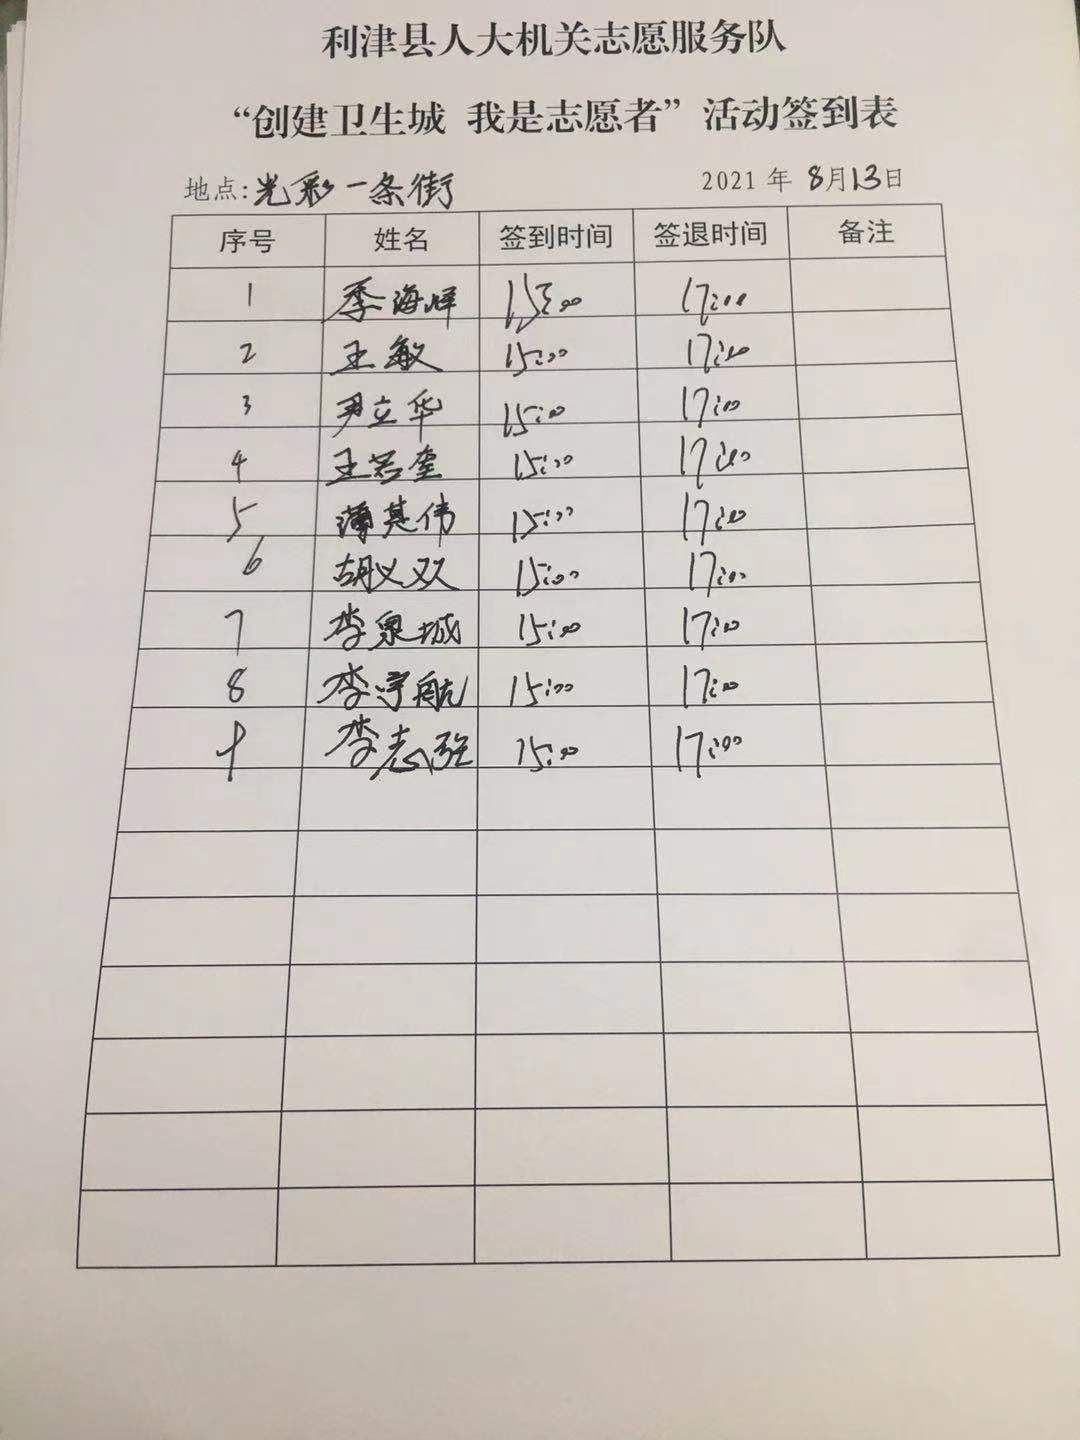 利津县人大机关志愿服务队
“创建卫生城 我是志愿者”活动签到表
地点:光彩一条街 2021年8月13日
序号 姓名 签到时间 签退时间 备注
1 季海洋 15:00 17:00
2 王敏 15:00 17:00
3 尹立华 15:00 17:00
4 王若奎 15:00 17:00
5 薄其伟 15:00 17:00
6 胡义双 15:00 17:00
7 李泉城 15:00 17:00
8 李宇航 15:00 17:00
9 李志强 15:00 17:00